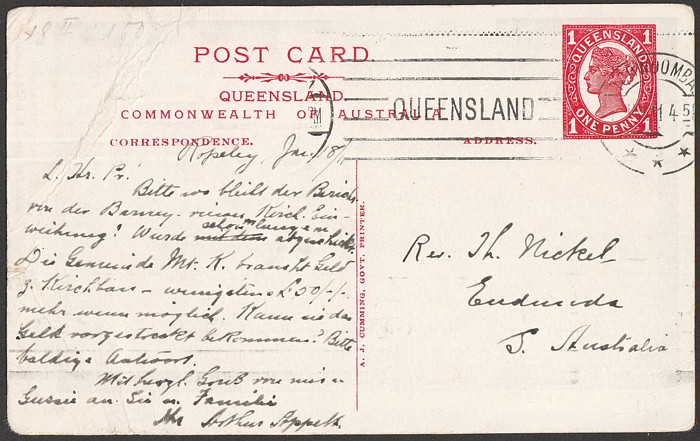 48 II
POST CARD.
QUEENSLAND.
COMMONWEALTH OF AUSTRALIA.
CORRESPONDENCE.
ADDRESS.
QUEENSLAND
1 QUEENSLAND 1
1 ONE PENNY 1
PM
14
Ropeley, Jan. 18/1
L. Hr. Pr.
Bitte wo bleibt der Bericht
von der Barney Kirch. Ein-
weihung? Wurde schon abgeschickt.
Die Gemeinde Mt. K. braucht Geld
z. Kirchbau – wenigstens £50/-/-
mehr wenn möglich. Kann sie das
Geld vorgestreckt bekommen? Bitte
baldige Antwort.
Mit herzl. Gruß von mir u
Gussie an Sie u. Familie
Ihr Arthur Appelt.
A. J. CUMMING, GOVT. PRINTER.
Rev. Th. Nickel
Eudunda
S. Australia